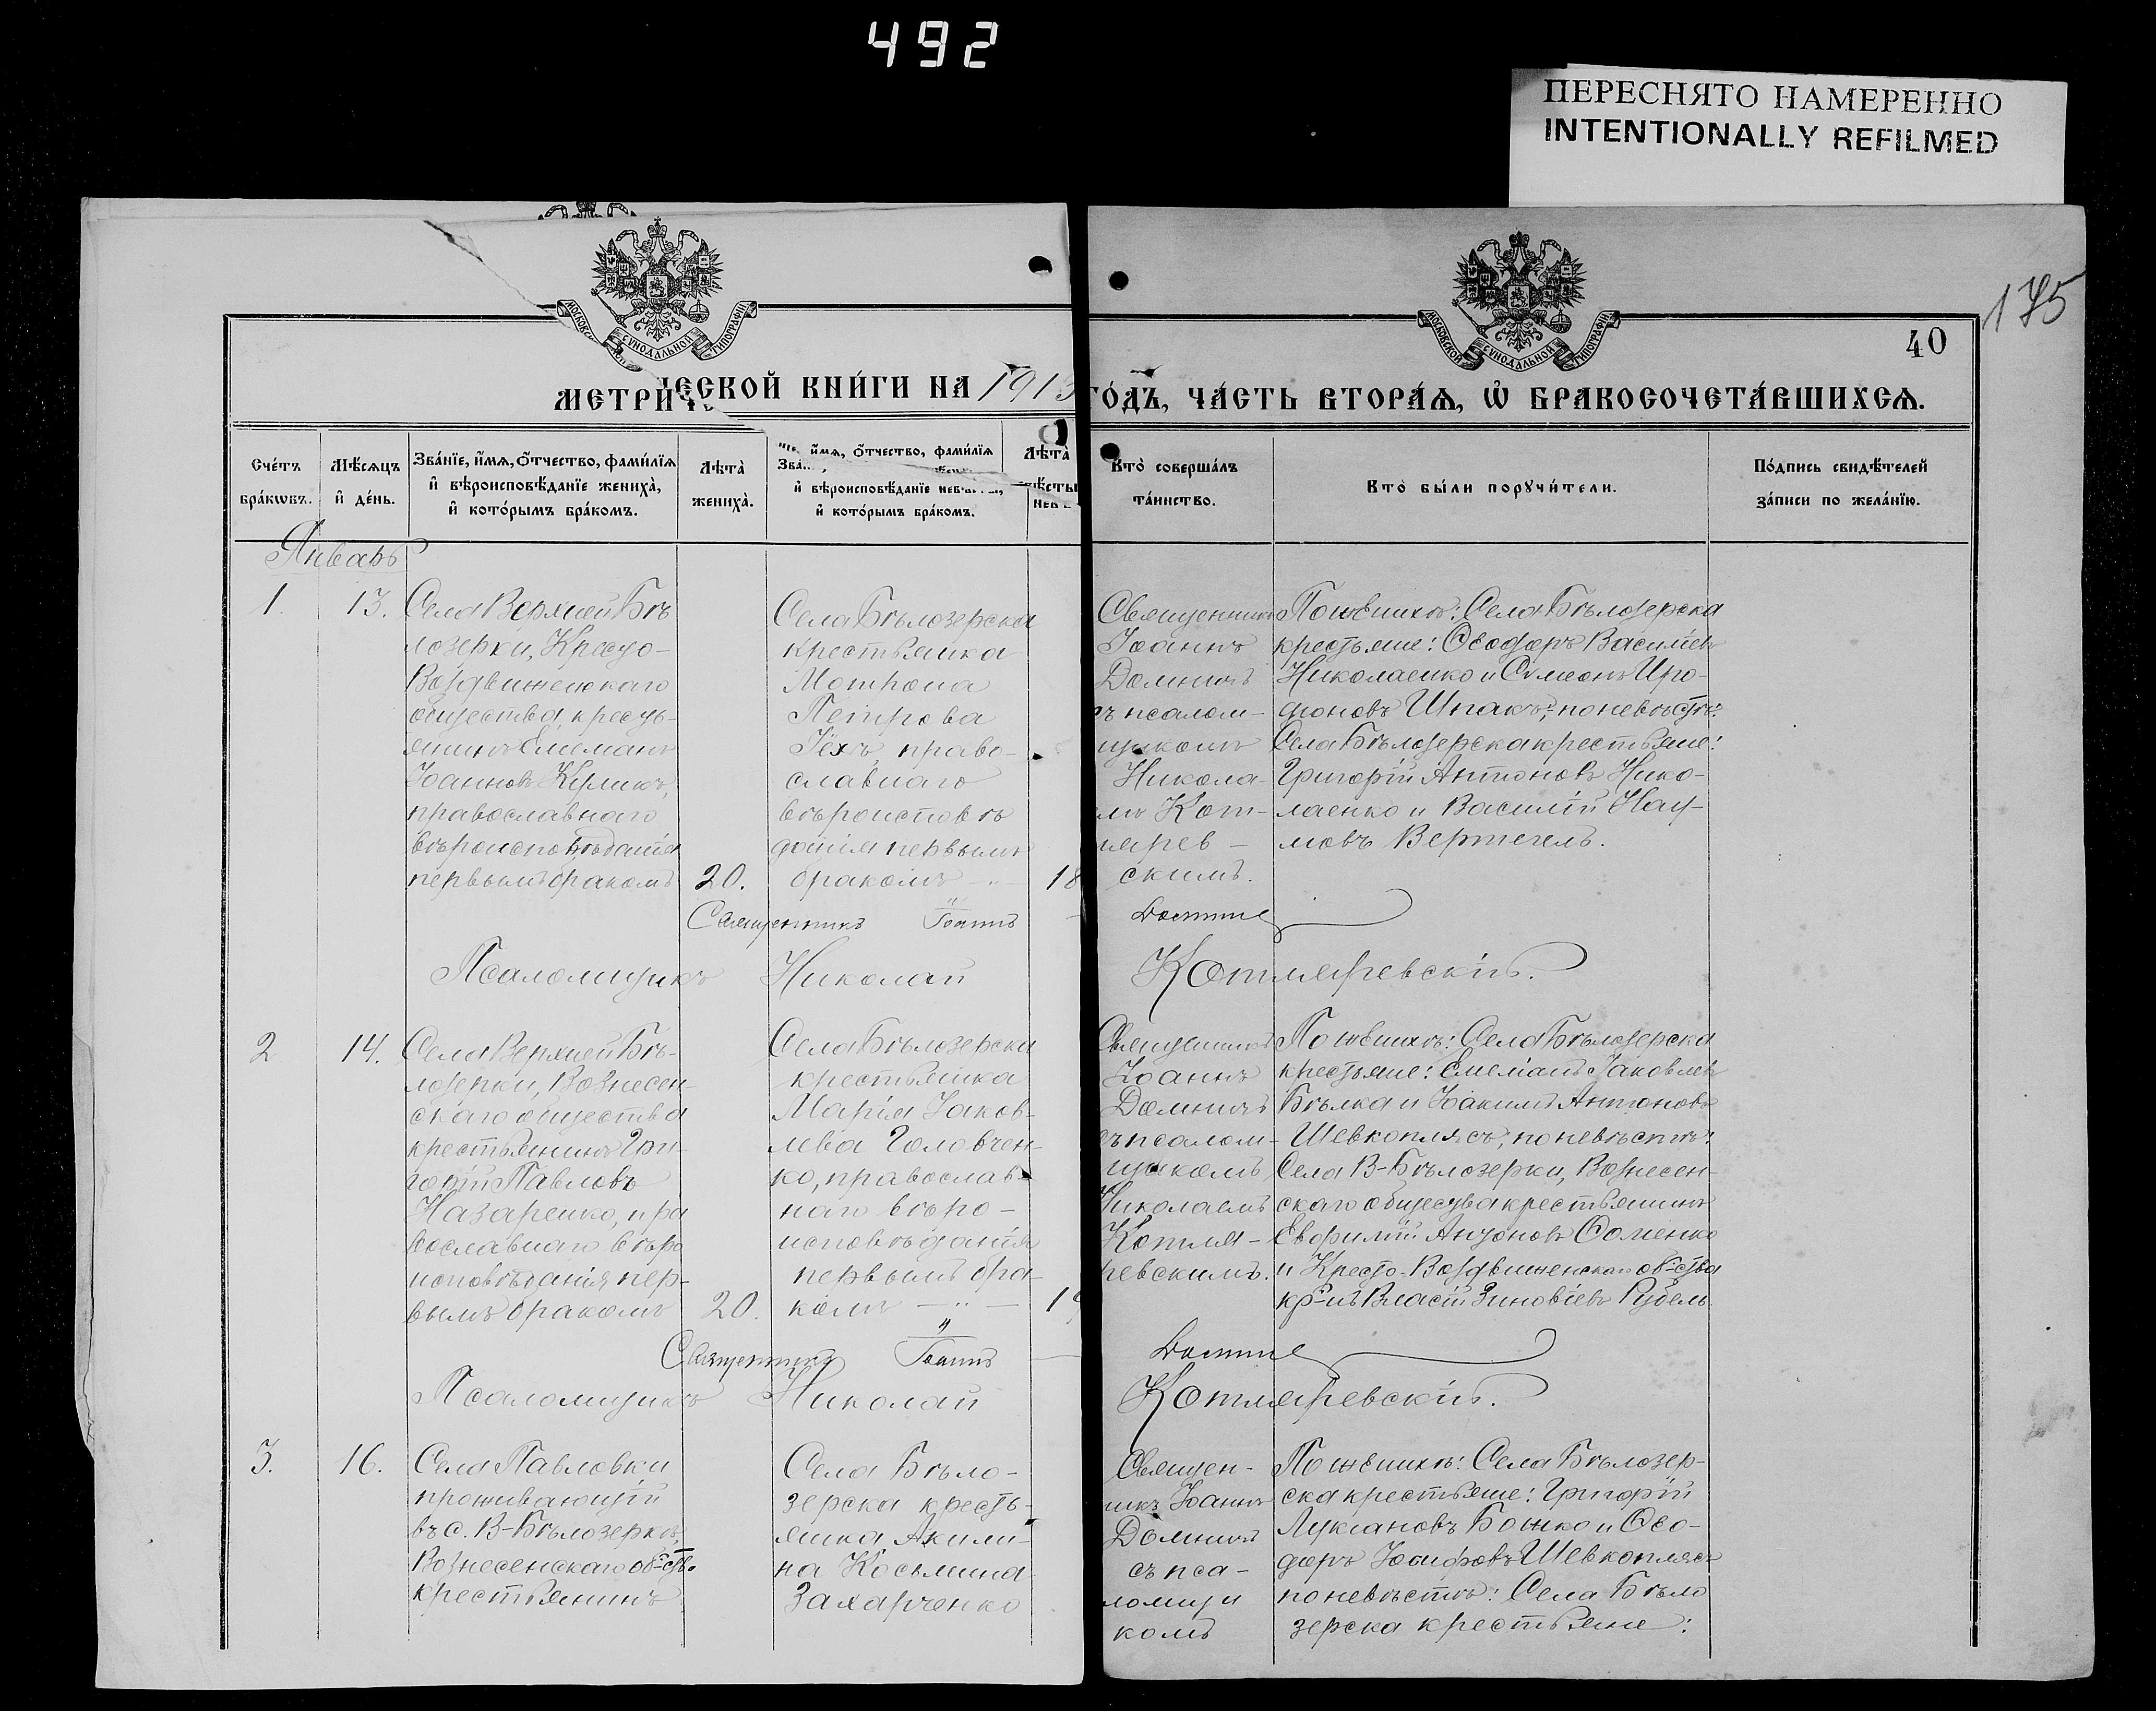 492
ПЕРЕСНЯТО НАМЕРЕННО
INTENTIONALLY REFILMED
175
МОСКОВСКОЙ СѴНОДАЛЬНОЙ ТИПОГРАФІИ
МОСКОВСКОЙ СѴНОДАЛЬНОЙ ТИПОГРАФІИ
40
МЕТРИЧЕСКОЙ КНИ́ГИ НА 1913
ГО́ДЪ, ЧА́СТЬ ВТОРА́Ѧ, Ѽ БРАКОСОЧЕТА́ВШИХСѦ.
Сче́тъ
бра́кѡвъ.
Мѣ́сѧцъ
и҆ де́нь.
Зва́нїе, и҆́мѧ, ѻ҆́тчество, фами́лїѧ
и҆ вѣроисповѣ́данїе жениха̀,
и҆ кото́рымъ бра́комъ.
Лѣта̀
жениха̀.
и҆́мѧ, ѻ҆́тчество, фами́лїѧ
и҆ вѣроисповѣ́данїе
и҆ кото́рымъ бра́комъ.
Лѣта̀
Кто̀ соверша́лъ
та́инство.
Кто̀ бы́ли порꙋчи́тели.
По́дпись свидѣ́телей
за́писи по жела́нїю.
Январь
1.
13.
Села Верхней Бѣ
лозерки, Кресто-
Воздвиженскаго
общества, кресть-
янинъ Емеліанъ
Іоанновъ Кулікъ,
православнаго
вѣроисповѣданія
первымъ бракомъ
20.
Села Бѣлозерска
крестьянка
Мотрона
Петрова
право-
славнаго
вѣроисповѣ
данія первымъ
бракомъ
18
Священникъ
Іоаннъ
Домничъ
съ псалом-
щикомъ
Никола-
емъ Кот-
лярев-
скимъ.
По женихѣ: Села Бѣлозерска
крестьяне: Ѳеодоръ Васильевъ
Николаенко и Симеонъ Иро-
діоновъ Шпакъ; по невѣстѣ:
Села Бѣлозерска крестьяне:
Григорій Антоновъ Нико-
лаенко и Василій Нау-
мовъ Вертегелъ.
Священникъ Іоаннъ Домничъ
Псаломщикъ Николай Котляревскій.
2
14.
Села Верхней Бѣ-
лозерки, Вознесен-
скаго общества
крестьянинъ Гри-
горій Павловъ
Назаренко, пра
вославнаго вѣро
исповѣданія пер-
вымъ бракомъ
20.
Села Бѣлозерска
крестьянка
Марія Іаков-
лева Головчен-
ко, православ-
наго вѣро-
исповѣданія
первымъ бра-
комъ
19
Священникъ
Іоаннъ
Домничъ
съ псалом-
щикомъ
Николаемъ
Котля-
ревскимъ.
По женихѣ: Села Бѣлозерска
крестьяне: Емеліанъ Іаковлевъ
Бѣлка и Іоакимъ Антоновъ
Шевкоплясъ; по невѣстѣ:
Села В-Бѣлозерки, Вознесен-
скаго общества крестьянинъ
Евфимій Антоновъ Ѳоменко
и Кресто-Воздвиженскаго об-ства
кр-нъ Власій Зиновіевъ
Священникъ Іоаннъ Домничъ
Псаломщикъ Николай Котляревскій.
3.
16.
Села Павловки
проживающій
въ с. В-Бѣлозеркѣ,
Вознесенскаго об-ства
крестьянинъ
Села Бѣло-
зерска кресть-
янка Акили-
на Косьмина
Захарченко
Священ-
никъ Іоаннъ
Домничъ
съ пса-
ломщи
комъ
По женихѣ: Села Бѣлозер-
ска крестьяне: Григорій
Лукіановъ Божко и Ѳео-
доръ Іосифовъ Шевкоплясъ
по невѣстѣ: Села Бѣло
зерска крестьяне: